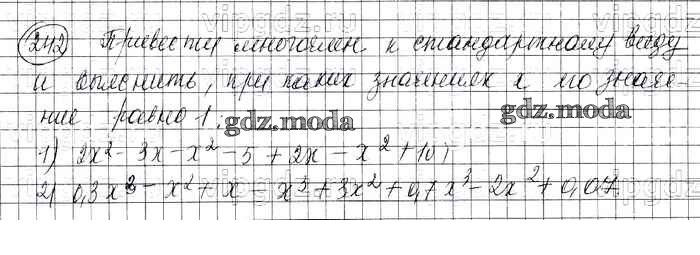 242 Привести многочлен к стандартному виду
и выяснить, при каких значениях x его значе-
ние равно 1:
gdz.moda gdz.moda
1) 2x² - 3x - x² - 5 + 2x - x² + 10;
2) 0,3x³ - x² + x - x³ + 3x² + 0,7x³ - 2x² + 0,07